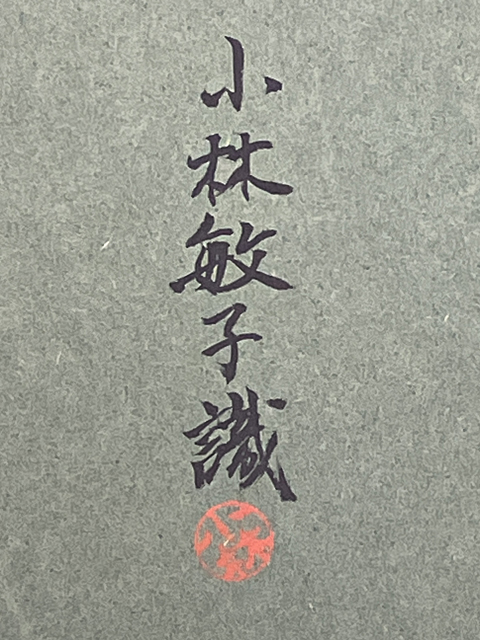 小林敏子識